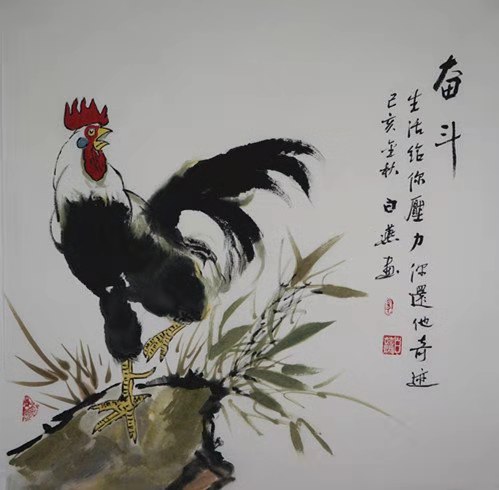 奋斗
生活给你壓力你還他奇迹
己亥金秋 白燕画